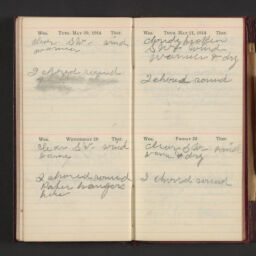 Wea. Tues. May 19, 1914 Ther.
clear S.W. wind
warmer
I chored round
Wea. Wednesday 20 Ther.
Clear S.W. wind
warm
I chored round
Paper hangers
here
Wea. Thur. May 21, 1914 Ther.
cloudy
S.W. wind
warmer & dry
I chored round
Wea. Friday 22 Ther.
Clear S.W. wind
warm & dry
I chored round